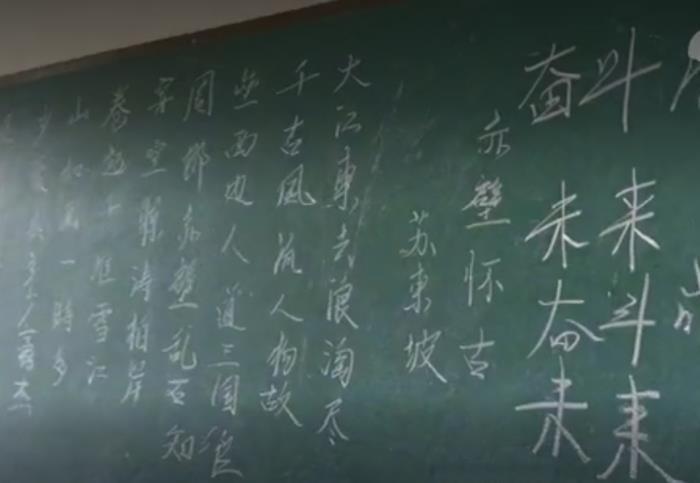 奋斗
未来
奋斗
未来
赤壁怀古
苏东坡
大江東去浪淘尽
千古風流人物故
垒西边人道三国
周郎赤壁乱石
穿空驚涛拍岸
卷起千堆雪江
山如画一時多
少